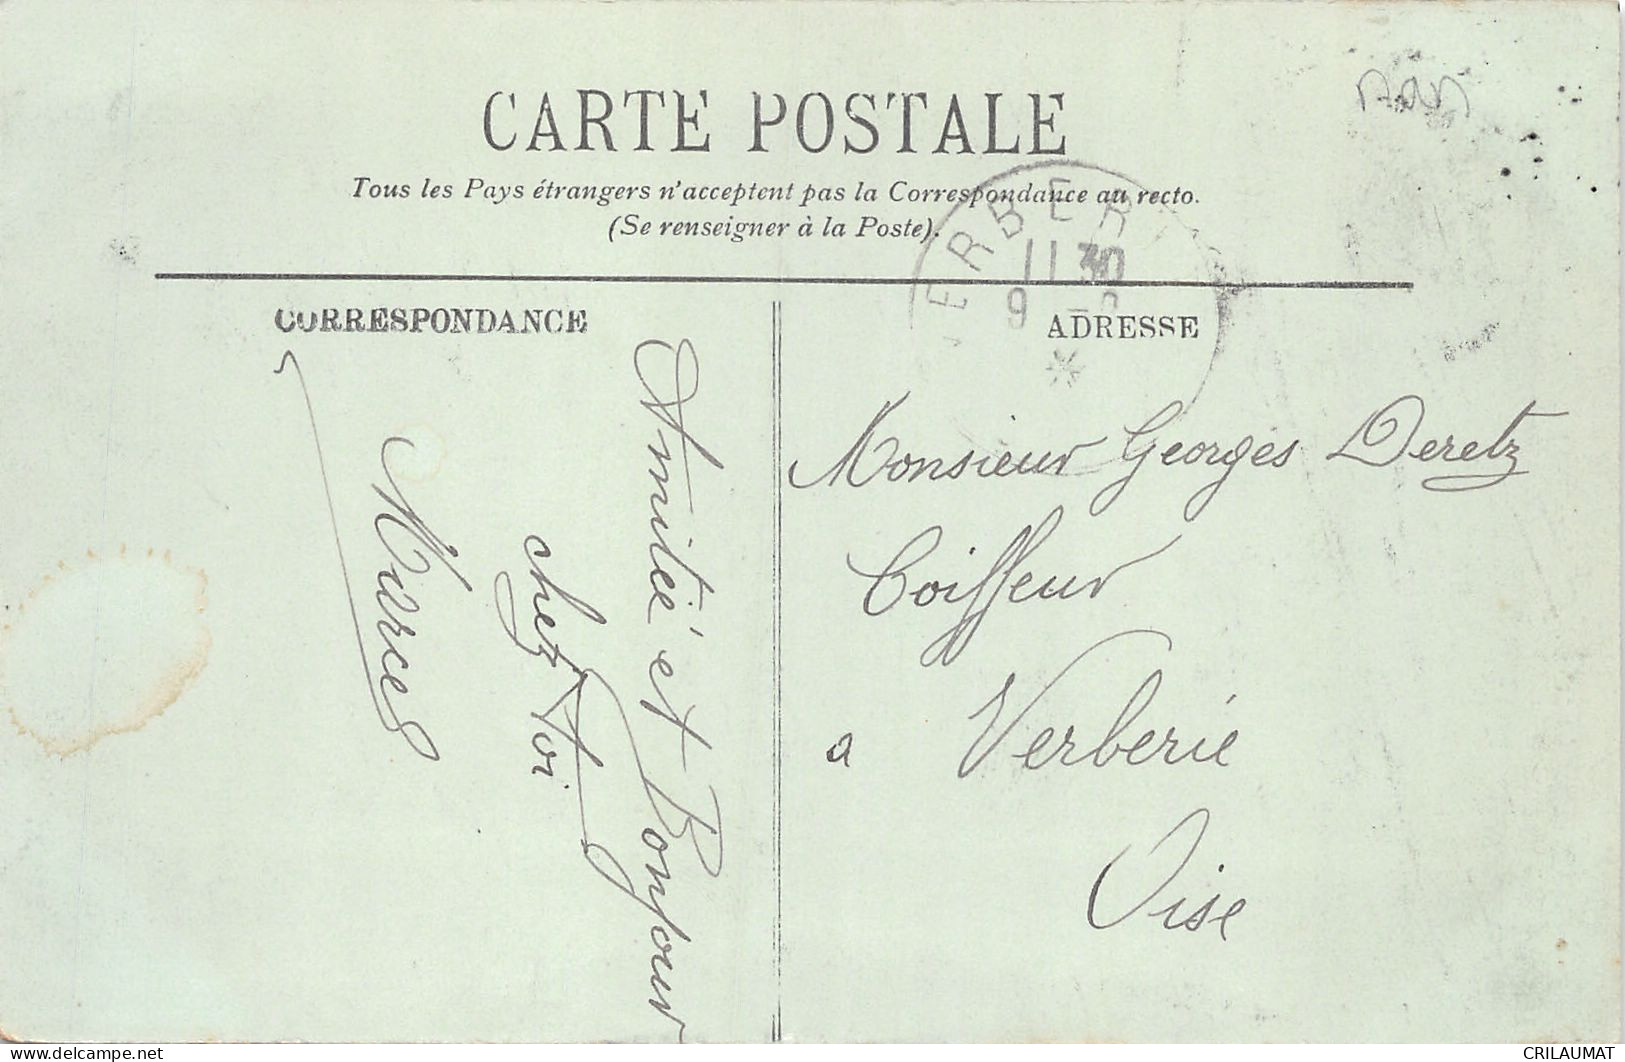 CARTE POSTALE
Tous les Pays étrangers n'acceptent pas la Correspondance au recto.
(Se renseigner à la Poste).
VERBER
11 30
9
CORRESPONDANCE
Amitié et Bonjour
chez toi
ADRESSE
Monsieur Georges Deretz
Coiffeur
a Verberie
Oise
delcampe.net
CRILAUMAT